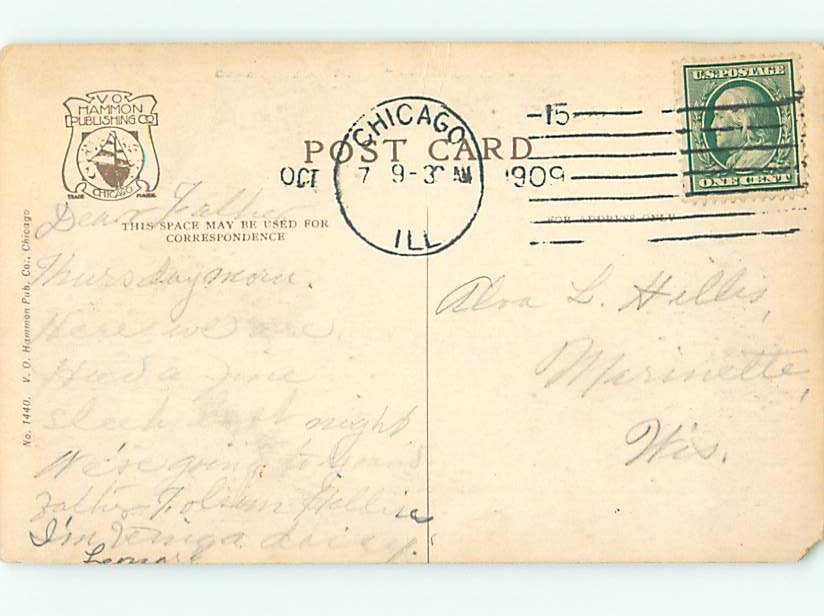 V O
HAMMON
PUBLISHING CO
CHICAGO
TRADE MARK
POST CARD
CHICAGO
OCT 7 9-30 AM 1909
ILL
15
U.S. POSTAGE
ONE CENT
THIS SPACE MAY BE USED FOR
CORRESPONDENCE
FOR ADDRESS ONLY
No. 1440. V. O. Hammon Pub. Co., Chicago
Dear Father
Thursday morn.
Here we are.
Had a fine
sleep last night
We're going to
I'm
Alva L. Hillis,
Marinette,
Wis.